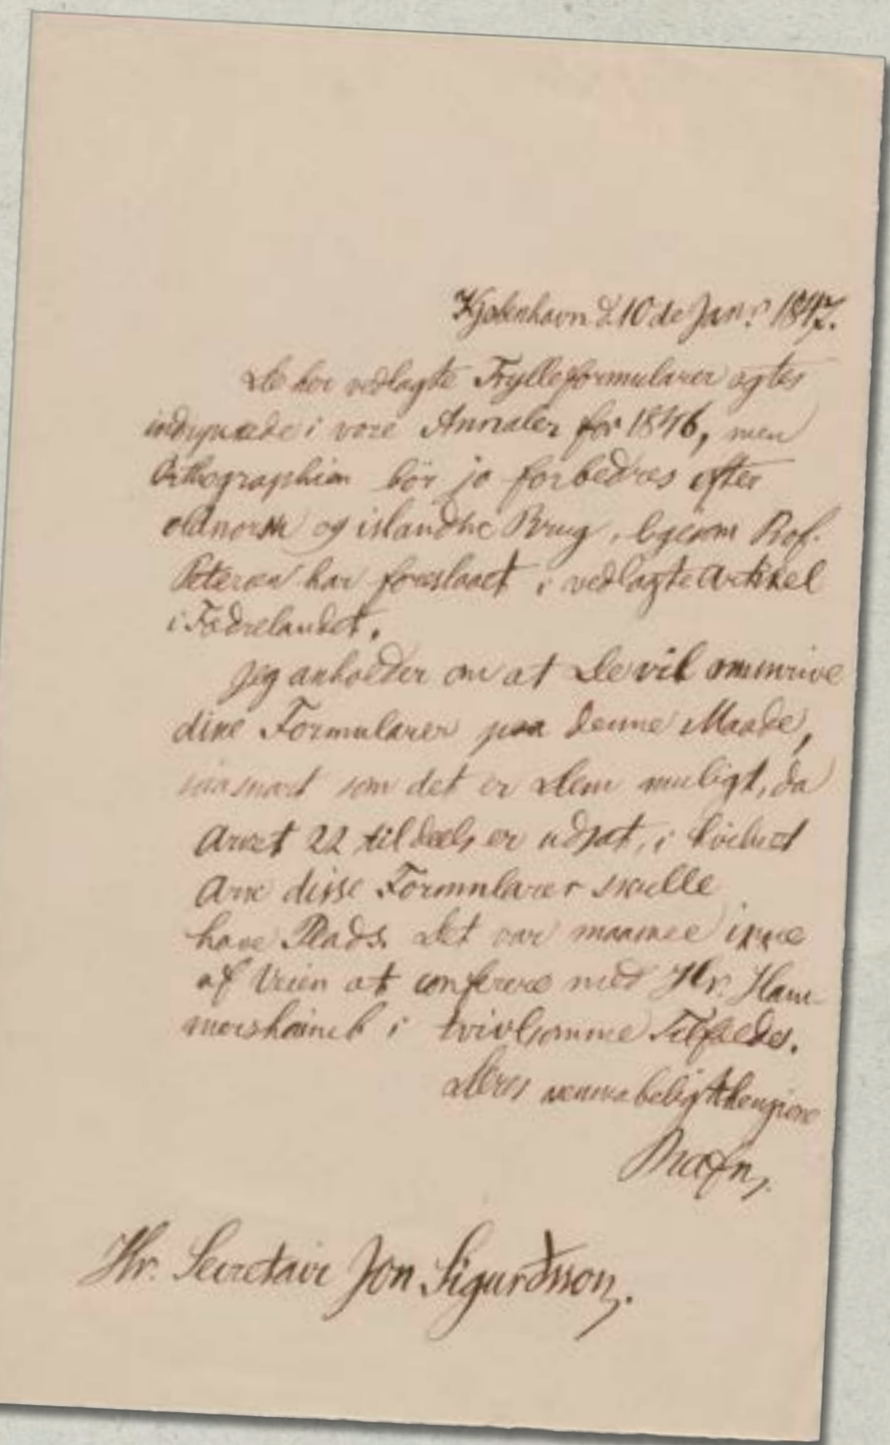 Kjøbenhavn d. 10de Janr. 1847.
De her vedlagte Trylleformularer agtes
indrykkede i vore Annaler for 1846, men
Orthographien bör jo forbedres efter
oldnorsk og islandske Brug, ligesom Prof.
Petersen har foreslaaet i vedlagte Artikel
i Fædrelandet.
Jeg anholder om at De vil omskrive
disse Formularer paa denne Maade,
saasnart som det er Dem muligt, da
Arket 22 tildeels er udsat, i hvilket
Ark disse Formularer skulle
have Plads. Det var maaskee ikke
af Veien at conferere med Hr. Ham-
mershaimb i tvivlsomme Tilfælde.
Deres venskabeligt hengivne
Rafn,
Hr. Secretair Jon Sigurðsson.